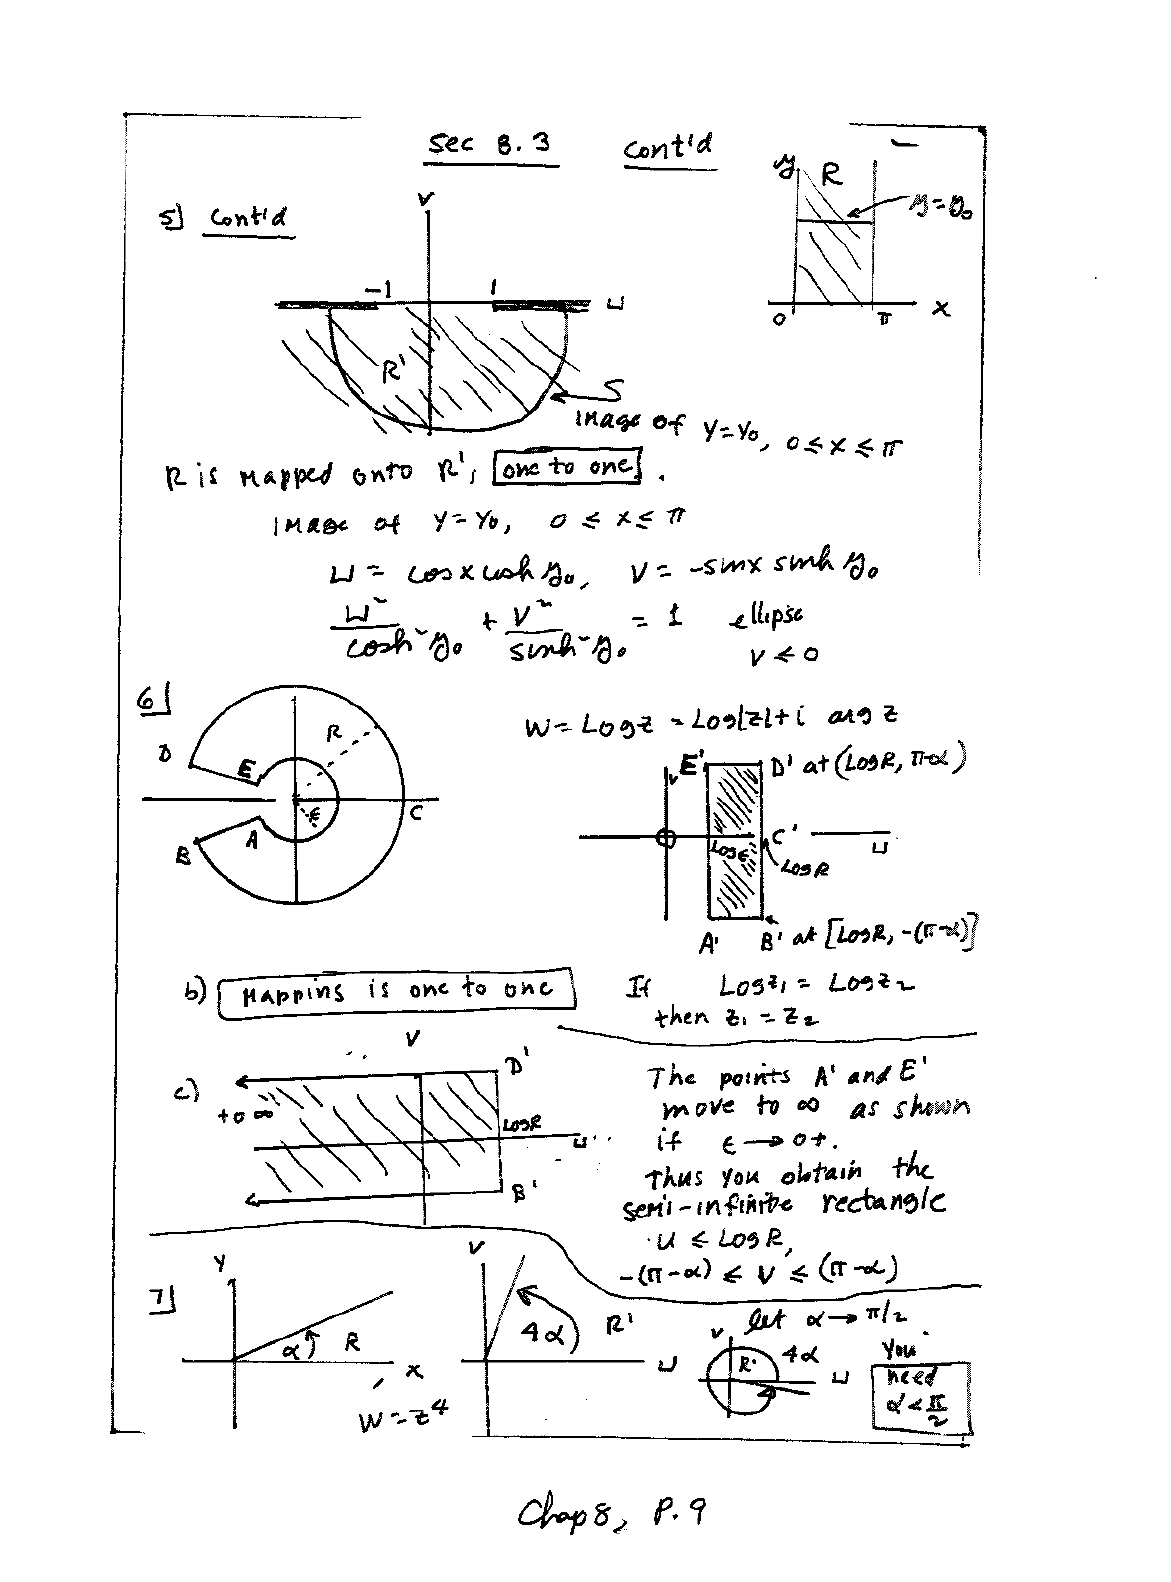 Sec 8.3 cont'd
5] cont'd
y R y = y₀
0 π x
v
-1 1 u
R'
image of y=y₀, 0 ≤ x ≤ π
R is mapped onto R', one to one.
image of y=y₀, 0 ≤ x ≤ π
u = cos x cosh y₀, v = -sin x sinh y₀
u²/cosh² y₀ + v²/sinh² y₀ = 1 ellipse
v ≤ 0
6]
D E R ε C A B
w = Log z = Log|z| + i arg z
v E' D' at (Log R, π-α)
Log ε C' u
Log R
A' B' at [Log R, -(π-α)]
b) Mapping is one to one
If Log z₁ = Log z₂
then z₁ = z₂
c)
v D'
to ∞
Log R u
B'
The points A' and E'
move to ∞ as shown
if ε → 0+.
Thus you obtain the
semi-infinite rectangle
u ≤ Log R,
-(π-α) ≤ v ≤ (π-α)
7]
y α R x
w = z⁴
v 4α R' u
let α → π/2
v R' 4α u
You
need
α < π/2
Chap 8, P. 9